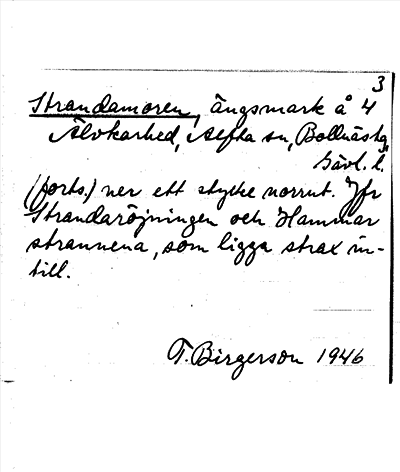 3
Strandamoren, ängsmark å 4
Älvkarhed, Alfta sn, Bollnästg,
Gävl. l.
(forts.) ner ett stycke norrut. Jfr
Strandaröjningen och Hammar
strannena, som ligga strax in-
till.
T. Birgerson 1946